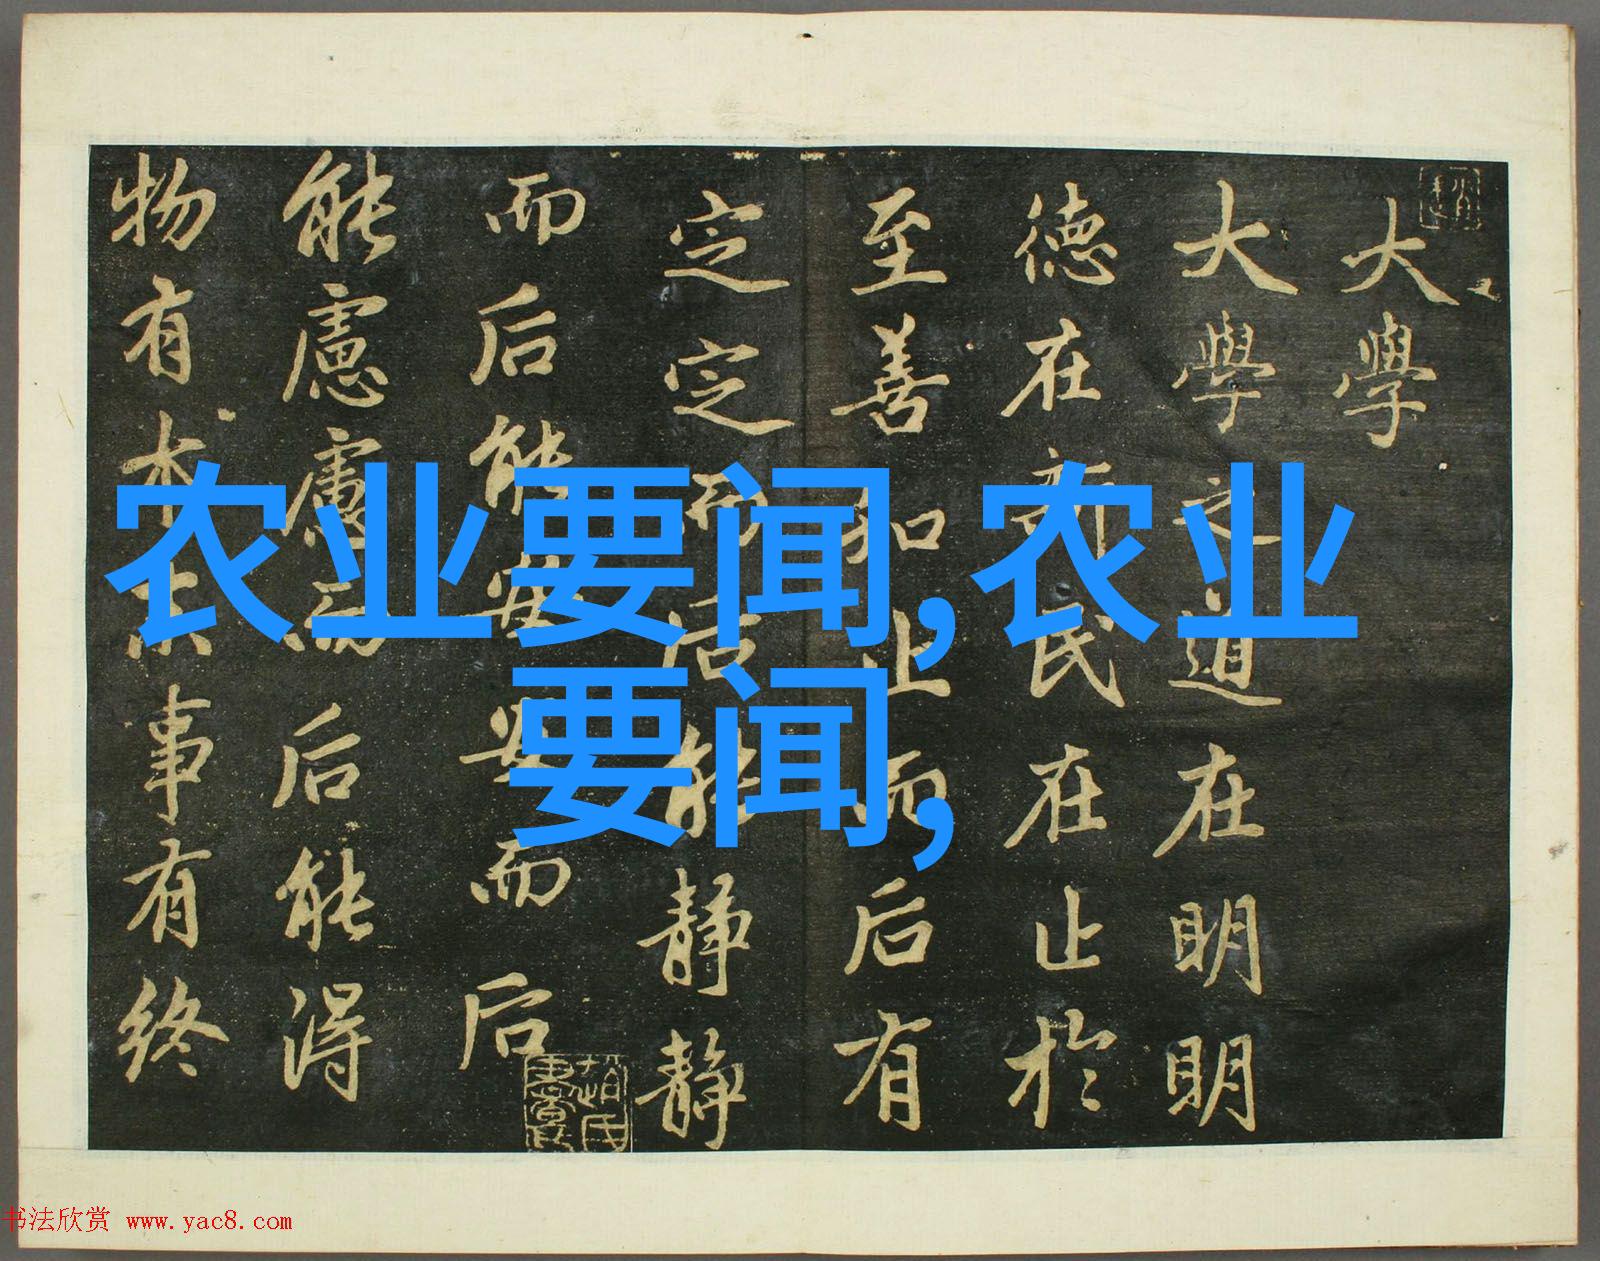 大學
大學之道在明明
德在新民在止於
至善知止而后有
定定而后能静静
而后能安安而后
能慮慮而后能得
物有本末事有終
农业要闻,农业
要闻,
书法欣赏 www.yac8.com